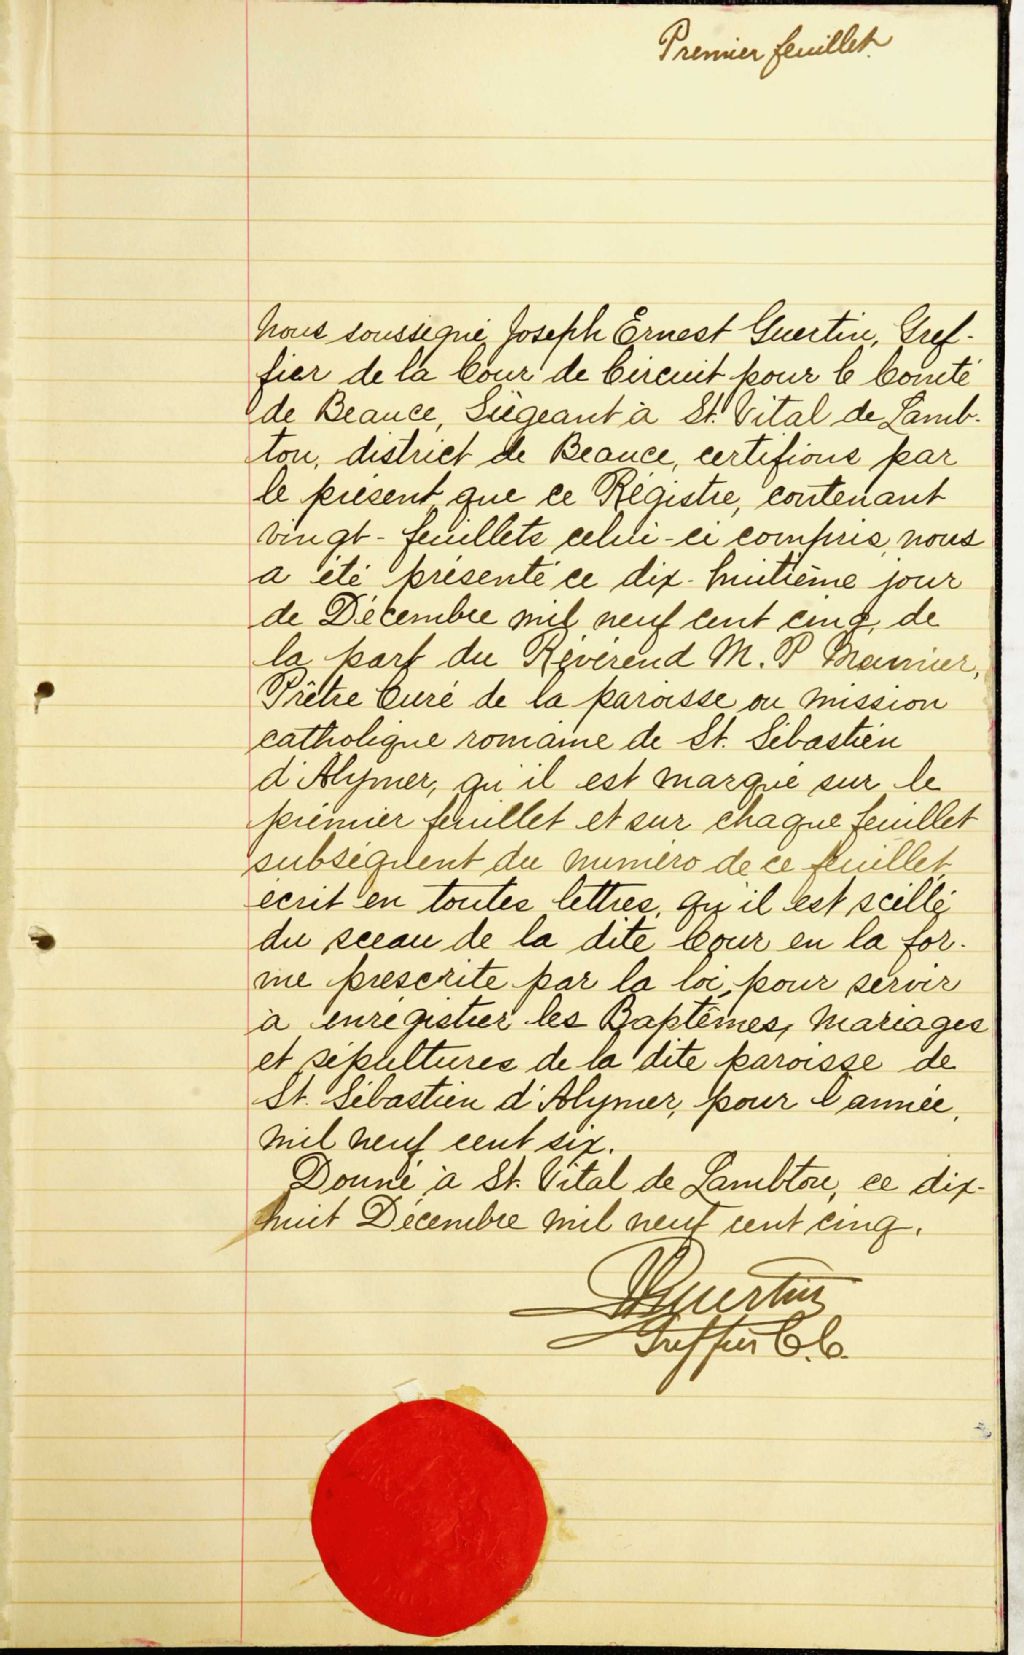 Premier feuillet.
Nous soussigné, Joseph Ernest Guertin, Gref-
fier de la Cour de Circuit pour le Comté
de Beauce, Siégeant à St. Vital de Lamb-
ton, district de Beauce, certifions par
le présent que ce Régistre, contenant
vingt-feuillets celui-ci compris, nous
a été présenté ce dix-huitième jour
de Décembre mil neuf cent cinq, de
la part du Révérend M. P
Prêtre Curé de la paroisse ou mission
catholique romaine de St. Sébastien
d'Alymer, qu'il est marqué sur le
prémier feuillet et sur chaque feuillet
subséquent du numéro de ce feuillet
écrit en toutes lettres, qu'il est scellé
du sceau de la dite Cour en la for-
me prescrite par la loi, pour servir
à enrégistrer les Baptêmes, Mariages
et sépultures de la dite paroisse de
St. Sébastien d'Alymer, pour l'année,
mil neuf cent six.
Donné à St. Vital de Lambton, ce dix-
huit Décembre mil neuf cent cinq.
Guertin
Greffier C.C.